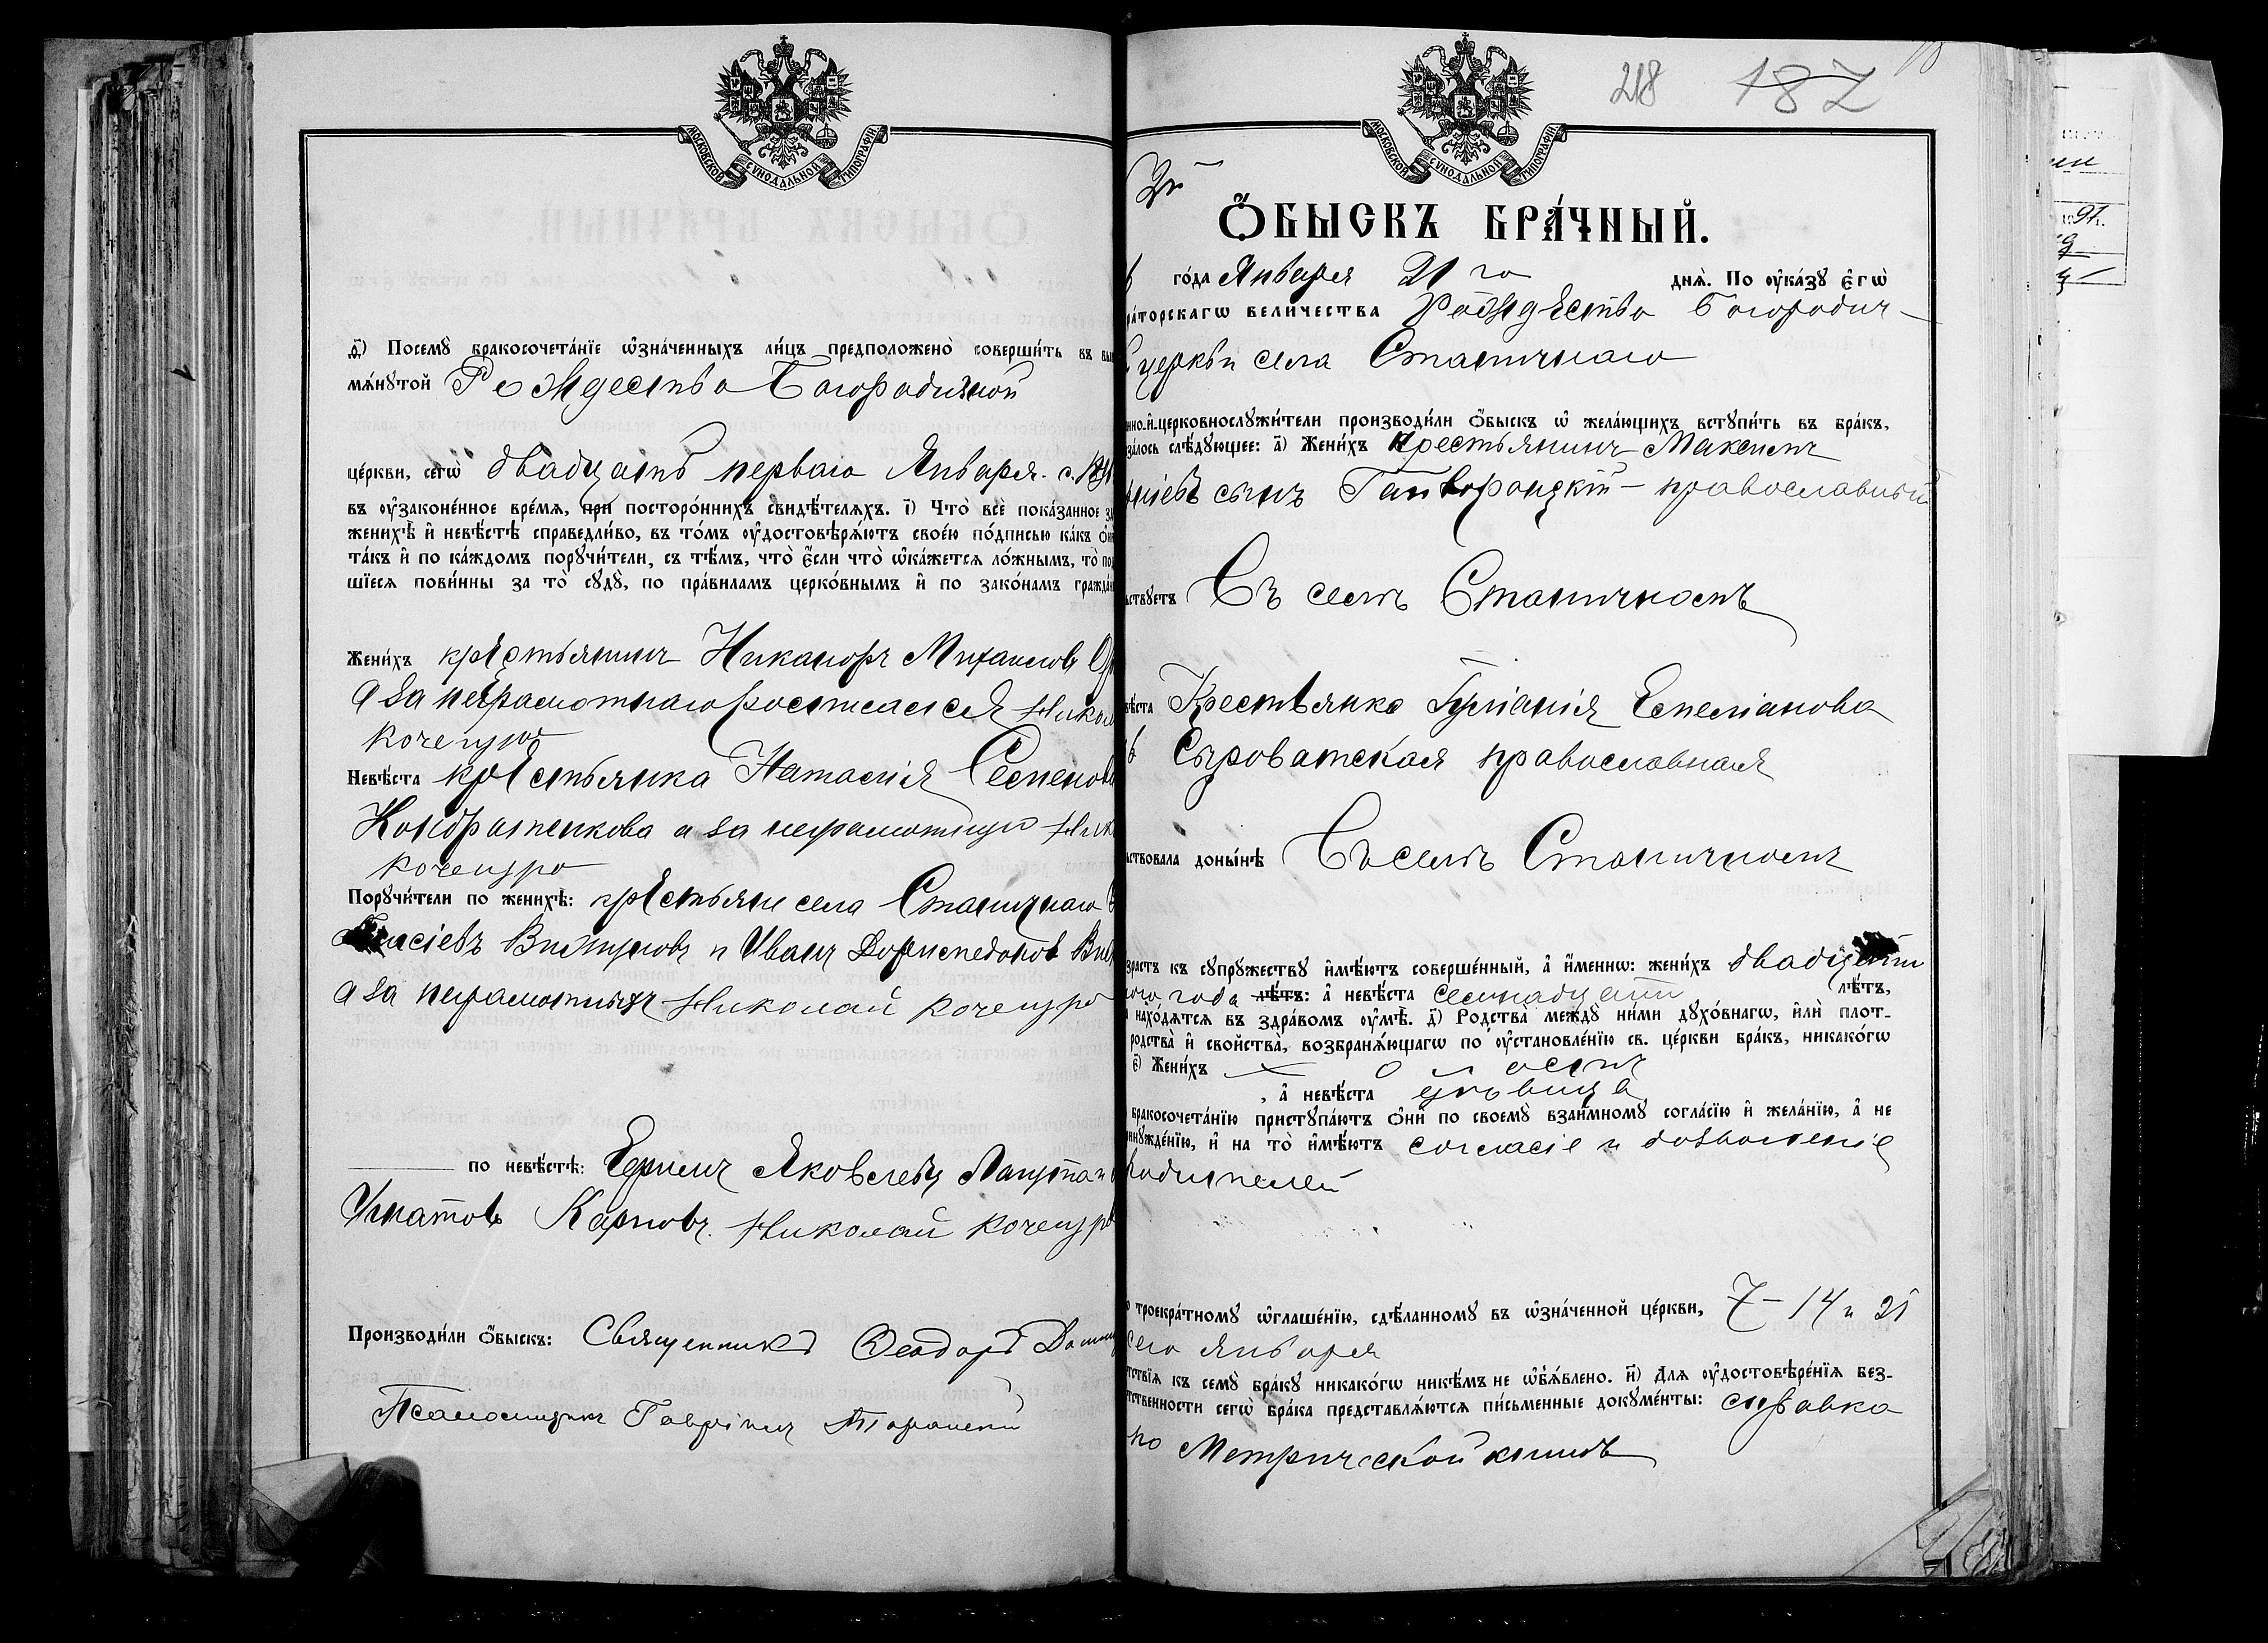 МОСКОВСКОЙ СѴНОДАЛЬНОЙ ТИПОГРАФІИ
д҃) Посемꙋ̀ бракосочета́нїе ѡ҆зна́ченныхъ ли́цъ предположено̀ соверши́ть въ вы
мѧ́нꙋтой Рождество Богородичной
це́ркви, сегѡ̀ двадцать перваго Января с.
въ ᲂу҆законе́нное вре́мѧ, при посторо́ннихъ свидѣ́телѧхъ. і҃) Что̀ всѐ пока́занное з
женихѣ̀ и҆ невѣ́стѣ справедли́во, въ то́мъ ᲂу҆достовѣрѧ́ютъ свое́ю по́дписью ка́къ ѻ҆н
та́къ и҆ по ка́ждомъ порꙋчи́тели, съ тѣ́мъ, что̀ є҆́сли что̀ ѡ҆ка́жетсѧ ло́жнымъ, то̀ по
шїесѧ пови́нны за то̀ сꙋдꙋ̀, по пра́виламъ церко́внымъ и҆ по зако́намъ гражда́
Жени́хъ крестьянинъ Никаноръ Михаиловъ
а за неграмотнаго росписался Никол
Кочерго
Невѣ́ста крестьянка Наталія Семенов
Кондратенкова а за неграмотную Ник
Кочерго
Порꙋчи́тели по женихѣ̀: крестьяне села Станичнаго
и Иванъ
а за неграмотныхъ Николай Кочерго
по невѣ́стѣ: Ефимъ Яковлевъ
Игнатовъ Карповъ. Николай Кочерго
Производи́ли ѻ҆́быскъ: Священникъ Ѳеодоръ
Псаломщикъ Гавріилъ
218 187
МОСКОВСКОЙ СѴНОДАЛЬНОЙ ТИПОГРАФІИ
Ѻ҆́БЫСКЪ БРА́ЧНЫЙ.
го́да Января 21 го днѧ̀. По ᲂу҆ка́зꙋ є҆гѡ̀
ра́торскагѡ вели́чества Рождество Богородич-
церкви села Станичнаго
нно-и҆-церковнослꙋжи́тели производи́ли ѻ҆́быскъ ѡ҆ жела́ющихъ встꙋпи́ть въ бра́къ,
за́лось слѣ́дꙋющее: а҃) Жени́хъ крестьянинъ Максимъ
сынъ православный
ьствꙋетъ Въ селѣ Станичномъ
вѣ́ста Крестьянка Іуліанія Емеліанова
Сыроватская православная
ьствовала доны́нѣ Въ селѣ Станичномъ
зрастъ къ сꙋпрꙋжествꙋ и҆мѣ́ютъ соверше́нный, а҆ и҆́меннѡ: жени́хъ двадцати
года лѣ́тъ: а҆ невѣ́ста семнадцати лѣ́тъ,
нахо́дѧтсѧ въ здра́вомъ ᲂу҆мѣ̀. д҃) Родства̀ междꙋ̀ ни́ми дꙋхо́внагѡ, и҆лѝ плот-
родства̀ и҆ сво́йства, возбранѧ́ющагѡ по ᲂу҆становле́нїю св. це́ркви бра́къ, никако́гѡ
є҃) Жени́хъ
, а҆ невѣ́ста
бракосочета́нїю пристꙋпа́ютъ ѻ҆нѝ по своемꙋ̀ взаи́мномꙋ согла́сїю и҆ жела́нїю, а҆ не
инꙋжде́нїю, и҆ на то̀ и҆мѣ́ютъ согласіе и дозволеніе
родителей
о троекра́тномꙋ ѡ҆глаше́нїю, сдѣ́ланномꙋ въ ѡ҆зна́ченной це́ркви, 7- 14 и 21
сего Января
тствїѧ къ семꙋ̀ бра́кꙋ никако́гѡ никѣ́мъ не ѡ҆б̾ѧ́влено. и҃) Длѧ ᲂу҆достовѣре́нїѧ без-
тственности сегѡ̀ бра́ка представлѧ́ютсѧ пи́сьменные докꙋме́нты: справка
по Метрической книгѣ